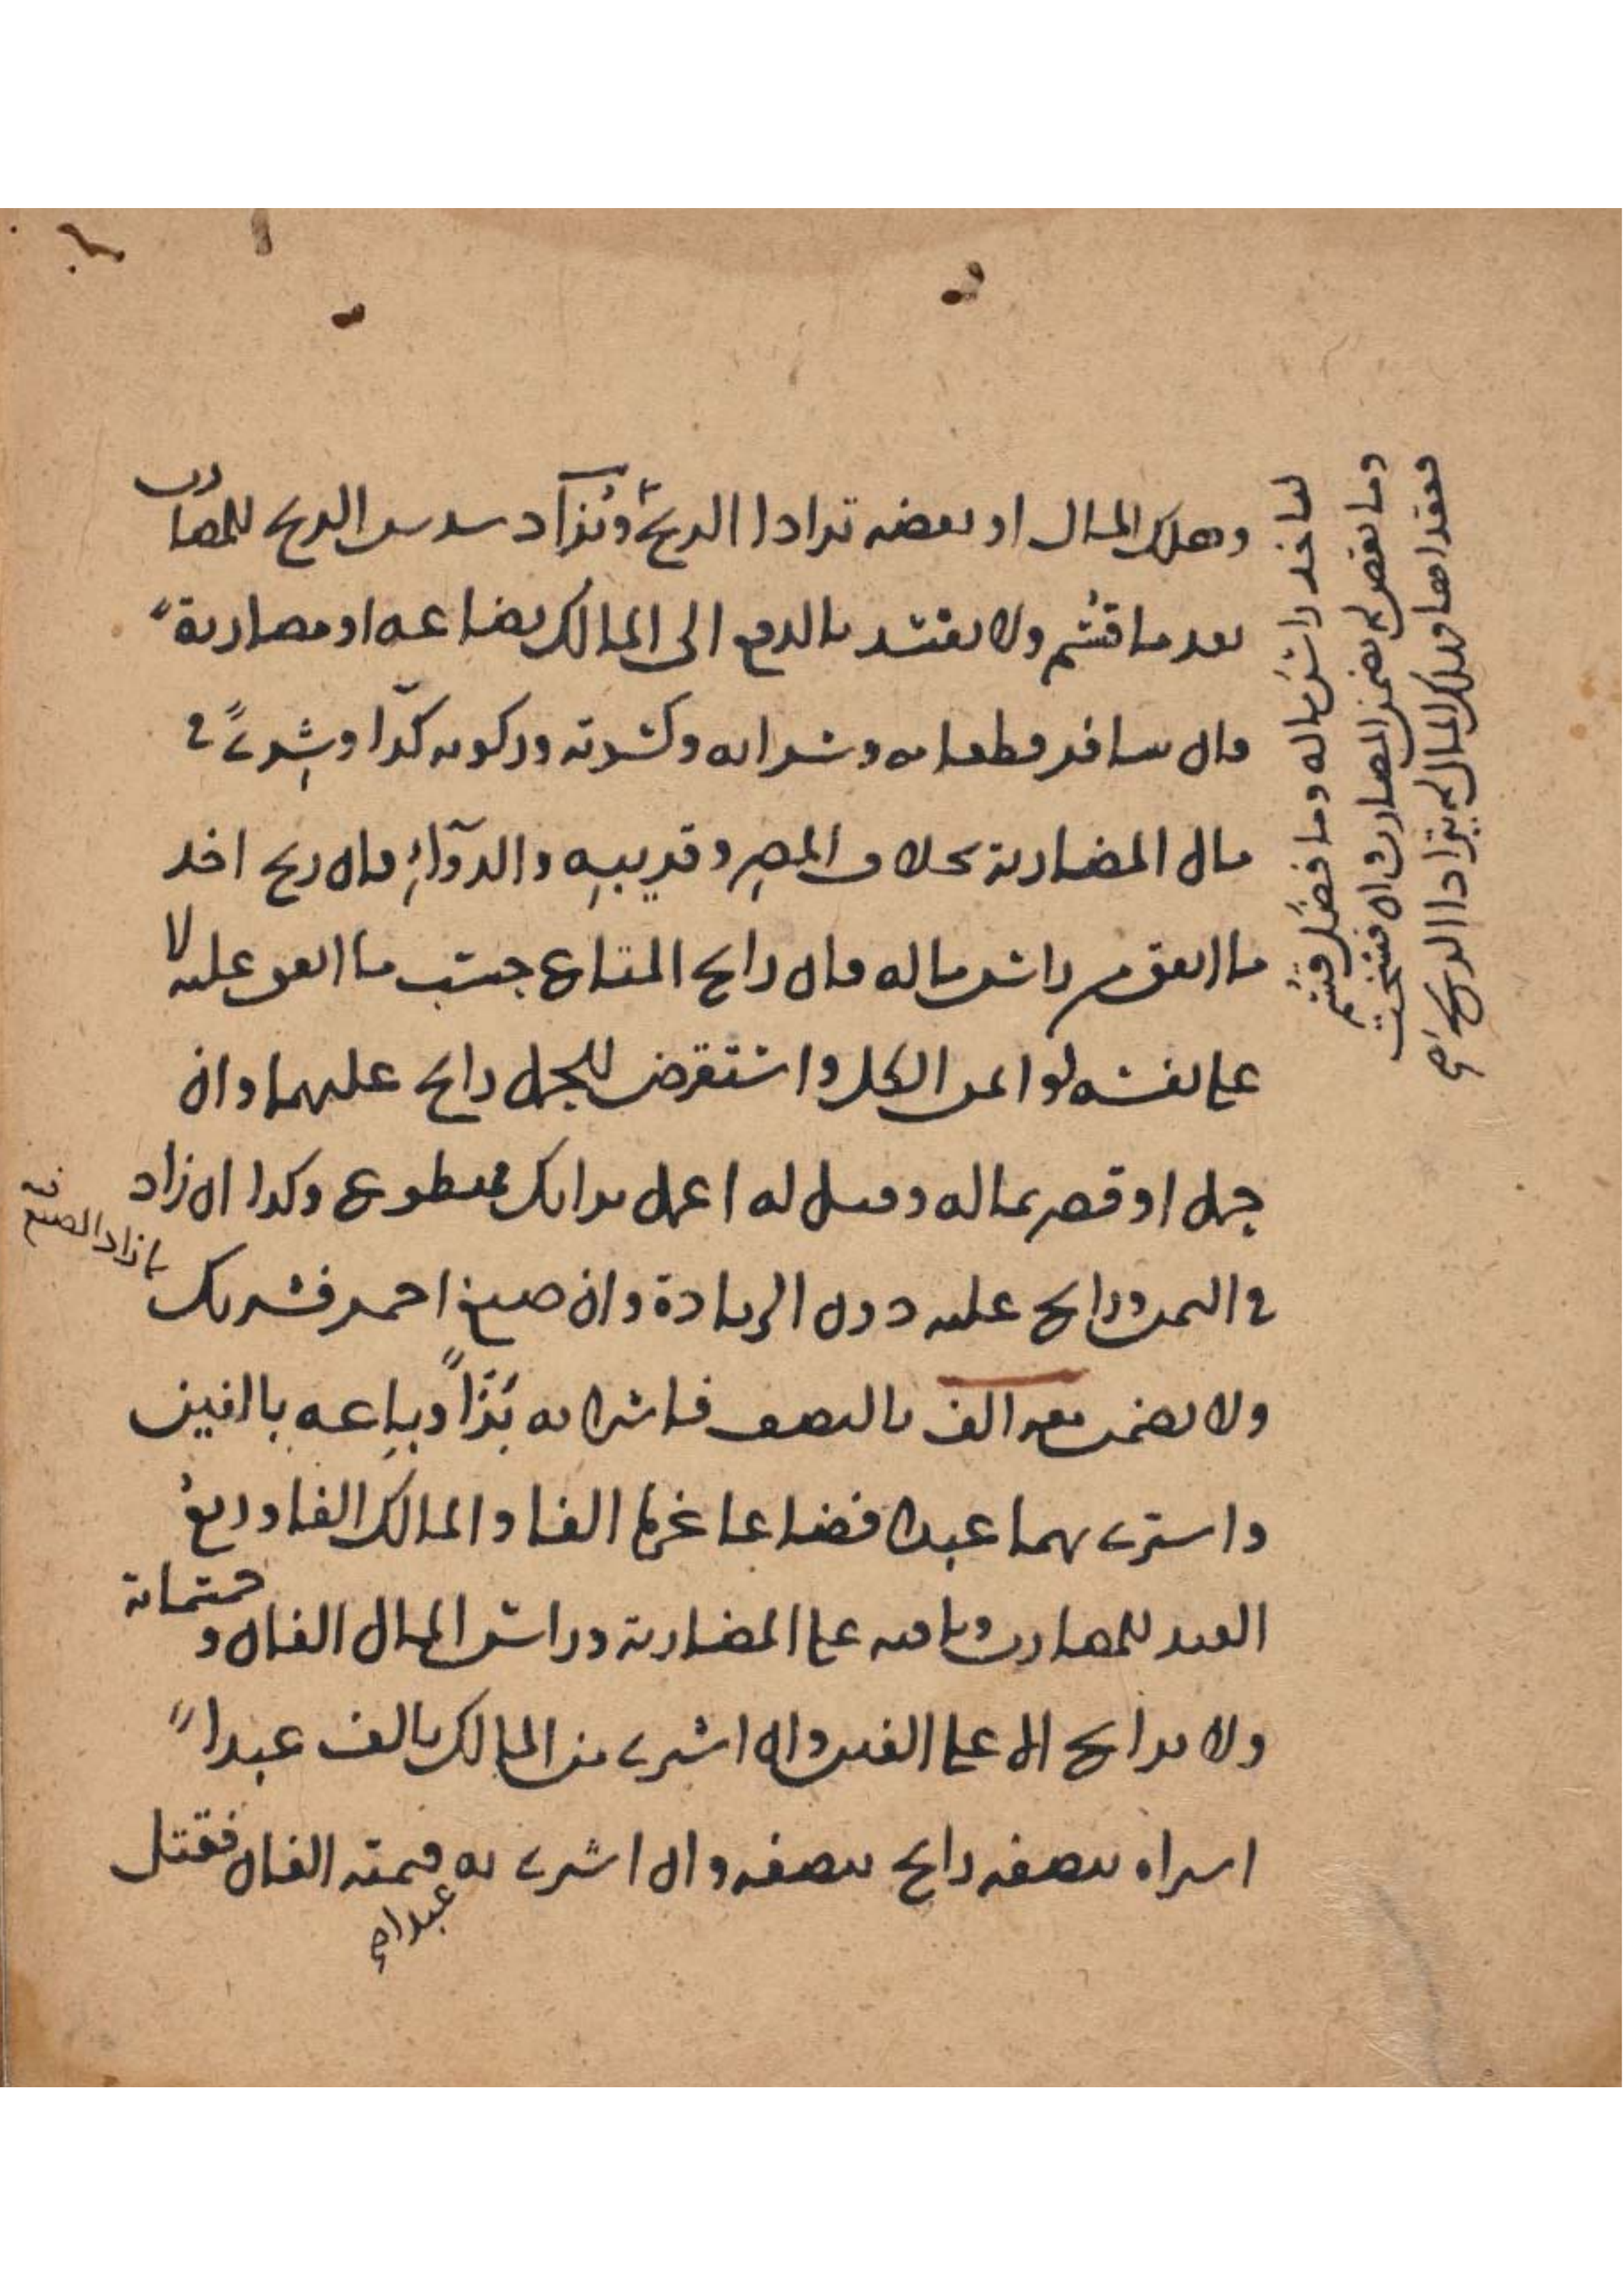 وهلك المال او بعضه ترادا الربح ويزاد سدس الربح للمضارب
بعد ما قسم ولا تفسد بالدفع الى المالك بضاعه او مضاربة
وان سافر فطعامه وشرابه وكسوته وركوبه كرا وشرى في
مال المضاربة بخلاف المصر وقريبه والدواء فان ربح اخذ
ما انفق من راس ماله فان رابح المتاع حسب ما انفق عليه لا
على نفسه لو اعمى الكل واستقرض للحمل رابح عليهما وان
حمل او قصر بماله وقيل له اعمل برايك فمتطوع وكذا ان زاد
في الثمن ورابح عليه دون الزيادة وان صبغ احمر فشريك
بما زاد الصبغ فيه
ولا يضمن معه الف بالنصف فاشرى به بزا وباعه بالفين
واشترى بهما عبدا فضاعا غرما الفا والمالك الفا وربع
العبد للمضارب وباقيه على المضاربة وراس المال الفان وخمسمائة
ولا يرابح الا على الفين وان اشرى من المالك بالف عبدا
اشراه بنصفه رابح بنصفه وان اشرى به قيمته الفان فقتل
عبدا صح
لنا خذ راس ماله وما فضل قسم
وما نقص لم يضمن المضارب وان فسخت
فعقداها وهلك المال لم يترادا الربح صح